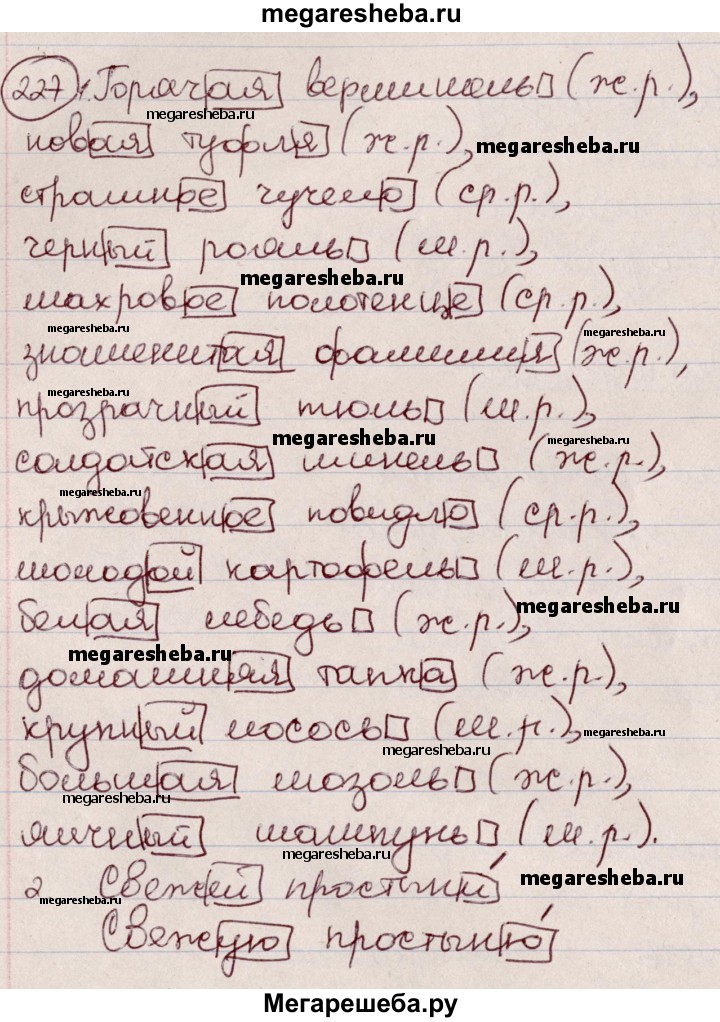 megaresheba.ru
227 1. Горячая вермишель (ж.р.),
megaresheba.ru
новая туфля (ж.р.),
megaresheba.ru
страшное чучело (ср.р.),
черный рояль (м.р.),
megaresheba.ru
махровое полотенце (ср.р.),
megaresheba.ru
megaresheba.ru
знаменитая фамилия (ж.р.),
megaresheba.ru
прозрачный тюль (м.р.),
megaresheba.ru
megaresheba.ru
солдатская шинель (ж.р.),
megaresheba.ru
megaresheba.ru
крыжовенное повидло (ср.р.),
молодой картофель (м.р.),
megaresheba.ru
белая лебедь (ж.р.),
megaresheba.ru
домашняя тапка (ж.р.),
крупный лосось (м.р.),
megaresheba.ru
megaresheba.ru
большая мозоль (ж.р.),
megaresheba.ru
яичный шампунь (м.р.).
megaresheba.ru
2 Свежей простыни
megaresheba.ru
megaresheba.ru
Свежую простыню
Мегарешеба.ру